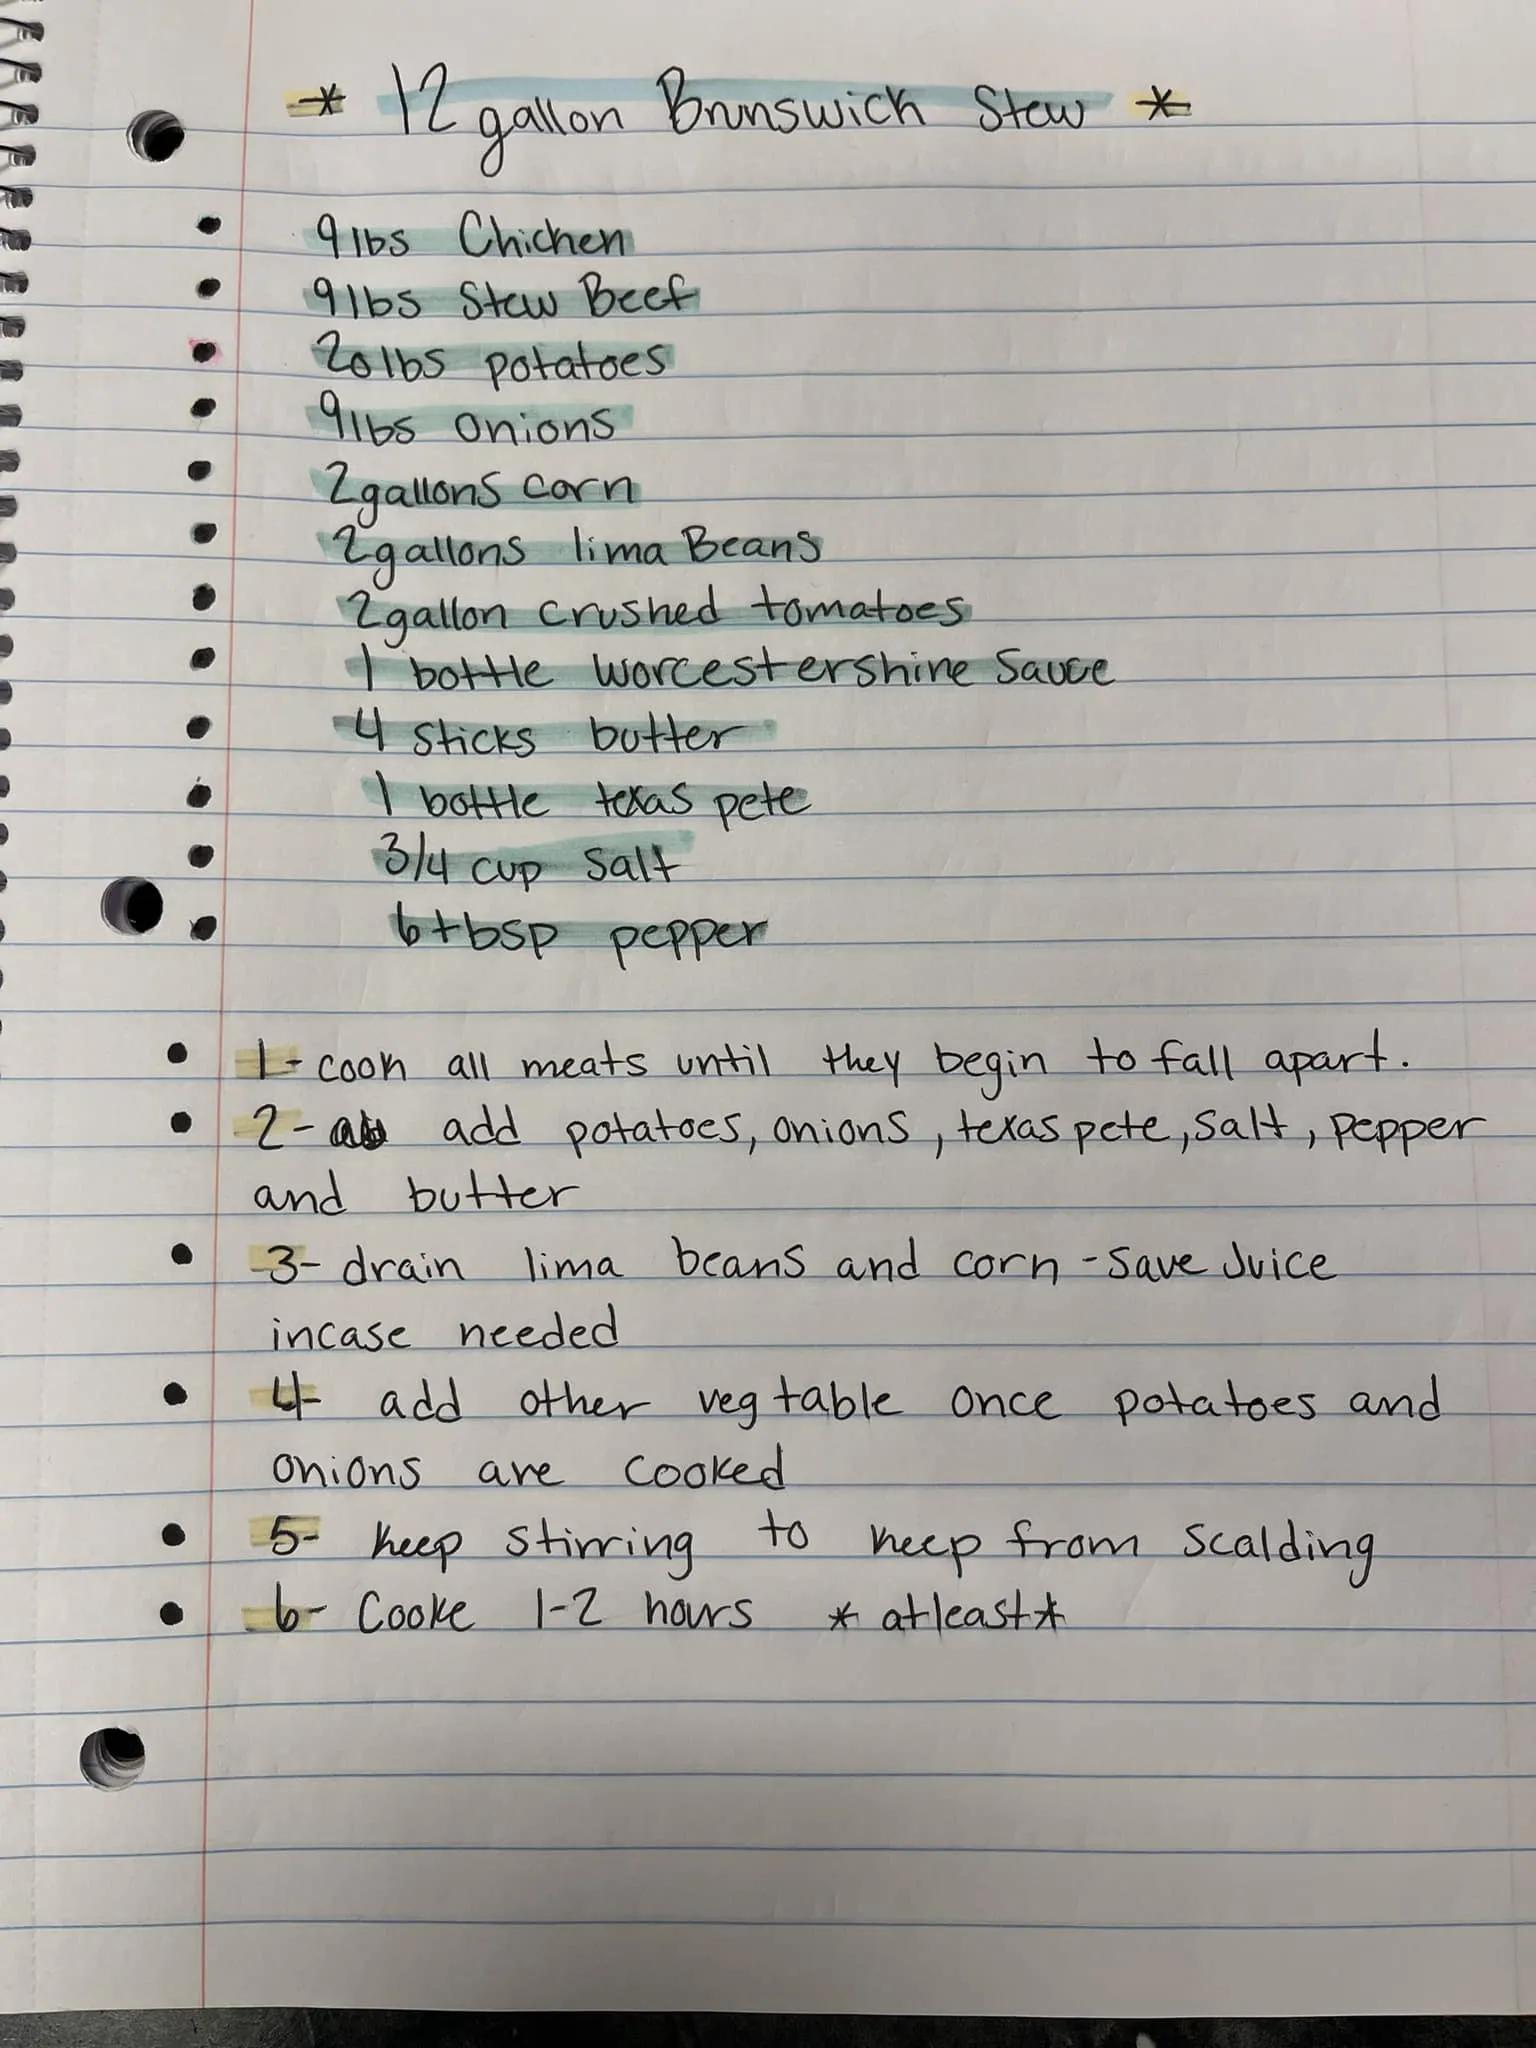 * 12 gallon Brunswick Stew *
9 lbs Chicken
9 lbs Stew Beef
20 lbs potatoes
9 lbs onions
2 gallons corn
2 gallons lima Beans
2 gallon crushed tomatoes
1 bottle worcestershine Sauce
4 sticks butter
1 bottle texas pete
3/4 cup Salt
6 tbsp pepper
1- cook all meats until they begin to fall apart.
2- add potatoes, onions, texas pete, salt, pepper
and butter
3- drain lima beans and corn - save Juice
incase needed
4- add other vegtable once potatoes and
onions are cooked
5- keep stirring to keep from scalding
6- Cooke 1-2 hours * atleast *